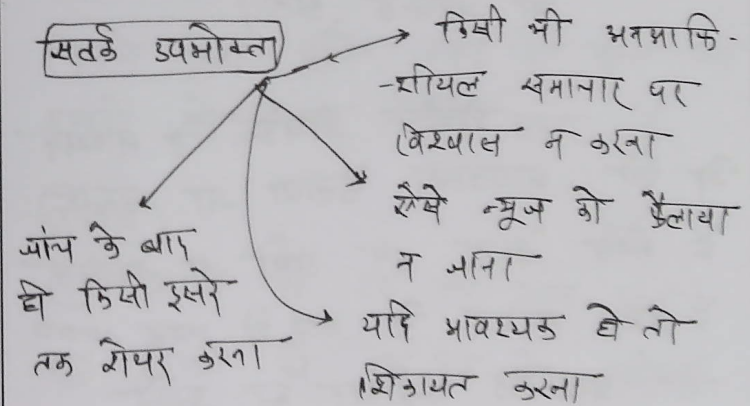 सतर्क उपभोक्ता
किसी भी अनआफि-
-शीयल समाचार पर
विश्वास न करना
ऐसे न्यूज को फैलाया
न जाना
यदि आवश्यक हो तो
शिकायत करना
जांच के बाद
ही किसी दूसरे
तक शेयर करना